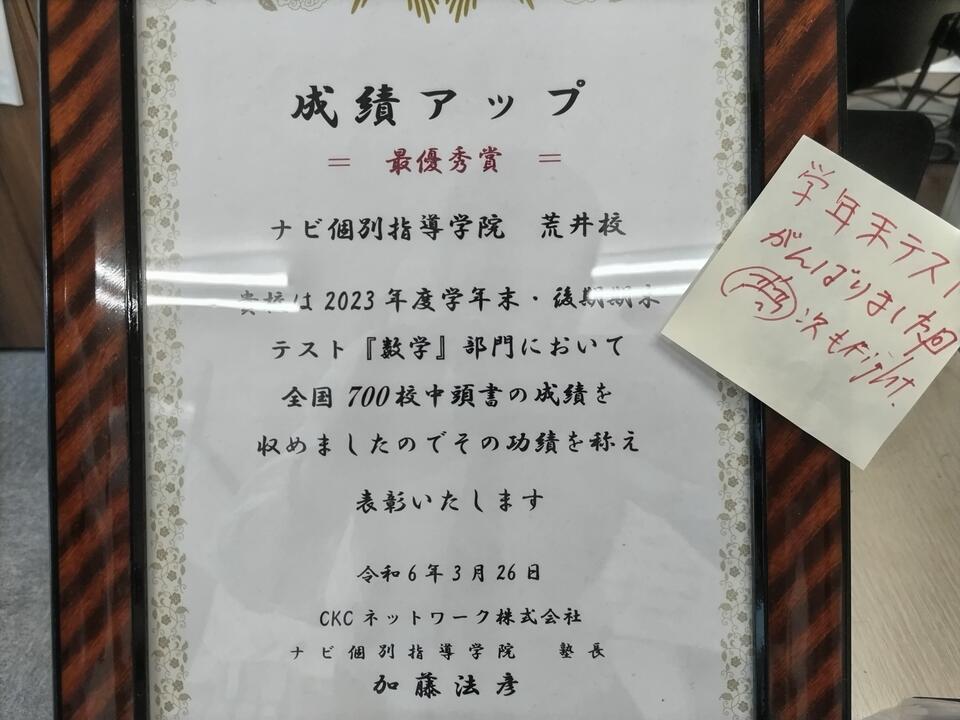 成績アップ
= 最優秀賞 =
ナビ個別指導学院 荒井校
貴校は2023年度学年末・後期期末
テスト『数学』部門において
全国700校中頭書の成績を
収めましたのでその功績を称え
表彰いたします
令和6年3月26日
CKCネットワーク株式会社
ナビ個別指導学院 塾長
加藤法彦
学年末テスト
がんばりました
次もFight.